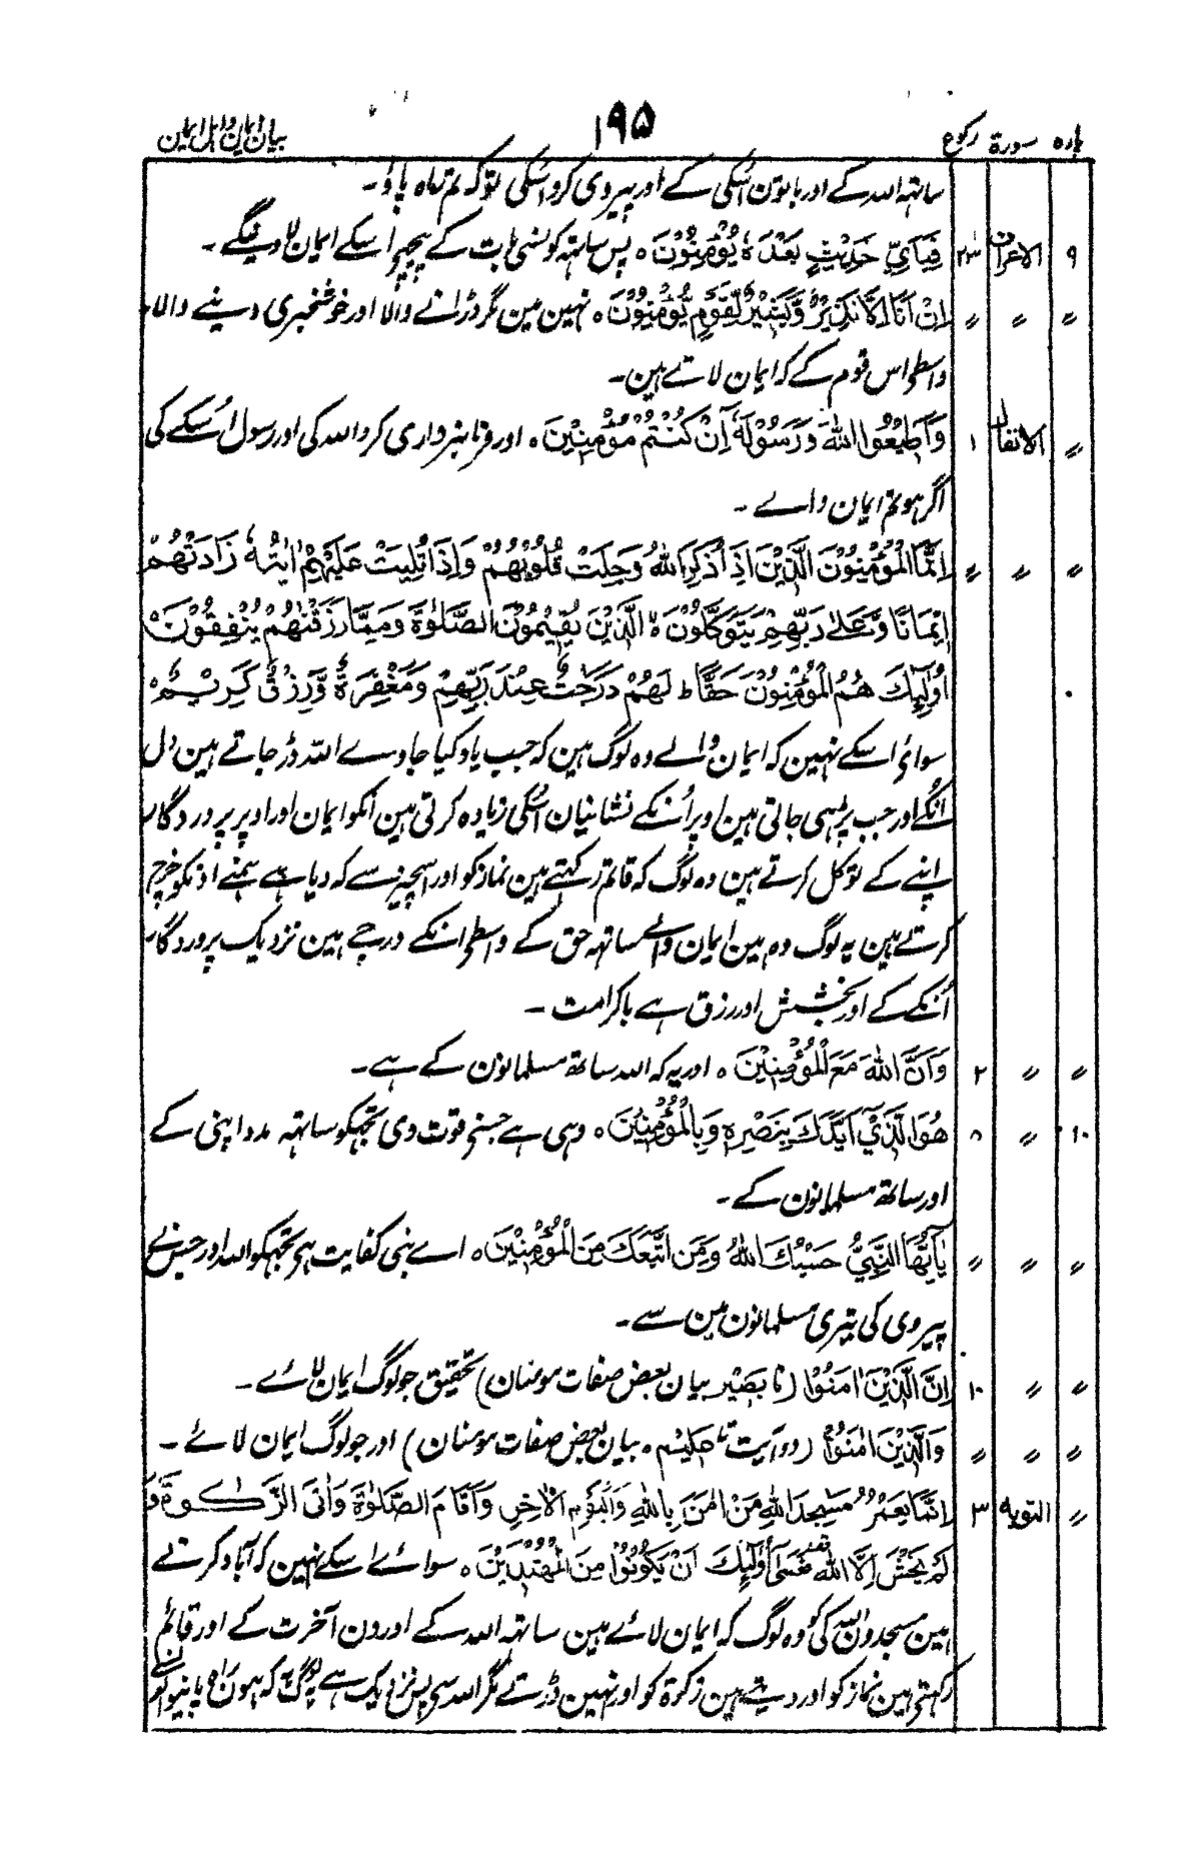 پارہ سورۃ رکوع ۱۹۵ بیان ایمان و اہل ایمان
ساتہہ اللہ کے اور باتون اُسکی کے اور پیروی کرو اُسکی توکہ تم راہ پاؤ۔
۹ الاعراف ۲۳ فَبِاَيِّ حَدِيْثٍۭ بَعْدَهٗ يُؤْمِنُوْنَ ہ پس ساتہہ کونسی بات کے پیچہے اسکے ایمان لاوینگے۔
〃 〃 〃 اِنْ اَنَا اِلَّا نَذِيْرٌ وَّبَشِيْرٌ لِّقَوْمٍ يُّؤْمِنُوْنَ ہ نہین مین مگر ڈرانے والا اور خوشخبری دینے والا
واسطے اس قوم کے کہ ایمان لاتے ہین۔
〃 الانفال ۱ وَاَطِيْعُوا اللهَ وَرَسُوْلَهٗ اِنْ كُنْتُمْ مُّؤْمِنِيْنَ ہ اور فرمانبرداری کرو اللہ کی اور رسول اُسکے کی
اگر ہو تم ایمان والے ۔
〃 〃 〃 اِنَّمَا الْمُؤْمِنُوْنَ الَّذِيْنَ اِذَا ذُكِرَ اللهُ وَجِلَتْ قُلُوْبُهُمْ وَاِذَا تُلِيَتْ عَلَيْهِمْ اٰيٰتُهٗ زَادَتْهُمْ
اِيْمَانًا وَّعَلٰى رَبِّهِمْ يَتَوَكَّلُوْنَ ہ الَّذِيْنَ يُقِيْمُوْنَ الصَّلٰوةَ وَمِمَّا رَزَقْنٰهُمْ يُنْفِقُوْنَ
اُولٰٓئِكَ هُمُ الْمُؤْمِنُوْنَ حَقًّا ط لَهُمْ دَرَجٰتٌ عِنْدَ رَبِّهِمْ وَمَغْفِرَةٌ وَّرِزْقٌ كَرِيْمٌ ہ
سواۓ اسکے نہین کہ ایمان والے وہ لوگ ہین کہ جب یاد کیا جاوے اللہ ڈر جاتے ہین دل
انکے اور جب پڑہی جاتی ہین اوپر اُنکے نشانیان اُسکی زیادہ کرتی ہین انکو ایمان اور اوپر پروردگار
اپنے کے توکل کرتے ہین وہ لوگ کہ قائم رکہتے ہین نماز کو اور اسچیز سے کہ دیا ہے ہمنے اونکو خرچ
کرتے ہین یہ لوگ وہ ہین ایمان والے ساتہہ حق کے واسطے انکے درجے ہین نزدیک پروردگار
اُنکے کے اور بخشش اور رزق ہے باکرامت ۔
〃 〃 ۲ وَاَنَّ اللهَ مَعَ الْمُؤْمِنِيْنَ ہ اور یہ کہ اللہ ساتھ مسلمانون کے ہے۔
۱۰ 〃 ۸ هُوَ الَّذِيْٓ اَيَّدَكَ بِنَصْرِهٖ وَبِالْمُؤْمِنِيْنَ ہ وہی ہے جسنے قوت دی تجہکو ساتہہ مدد اپنی کے
اور ساتھ مسلمانون کے۔
〃 〃 〃 يٰٓاَيُّهَا النَّبِيُّ حَسْبُكَ اللهُ وَمَنِ اتَّبَعَكَ مِنَ الْمُؤْمِنِيْنَ ہ اے نبی کفایت ہے تجہکو اللہ اور جس نے
پیروی کی تیری مسلمانون مین سے۔
〃 〃 ۱۰ اِنَّ الَّذِيْنَ اٰمَنُوْا (تا بَصِيْر بیان بعض صفات مومنان) تحقیق جو لوگ ایمان لاۓ۔
〃 〃 〃 وَالَّذِيْنَ اٰمَنُوْا (دو آیت تا حكيم ہ بیان بعض صفات مومنان) اور جو لوگ ایمان لائے ۔
〃 التوبہ ۳ اِنَّمَا يَعْمُرُ مَسٰجِدَ اللهِ مَنْ اٰمَنَ بِاللهِ وَالْيَوْمِ الْاٰخِرِ وَاَقَامَ الصَّلٰوةَ وَاٰتَى الزَّكٰوةَ وَ
لَمْ يَخْشَ اِلَّا اللهَ فَعَسٰٓى اُولٰٓئِكَ اَنْ يَّكُوْنُوْا مِنَ الْمُهْتَدِيْنَ ہ سوائے اسکے نہین کہ آباد کرتے
ہین مسجدون اللہ کی کو وہ لوگ کہ ایمان لائے ہین ساتہہ اللہ کے اور دن آخرت کے اور قائم
رکہتے ہین نماز کو اور دیتے ہین زکوۃ کو اور نہین ڈرتے مگر اللہ سے پس نزدیک ہے یہ لوگ کہ ہون راہ پانیوالونسے